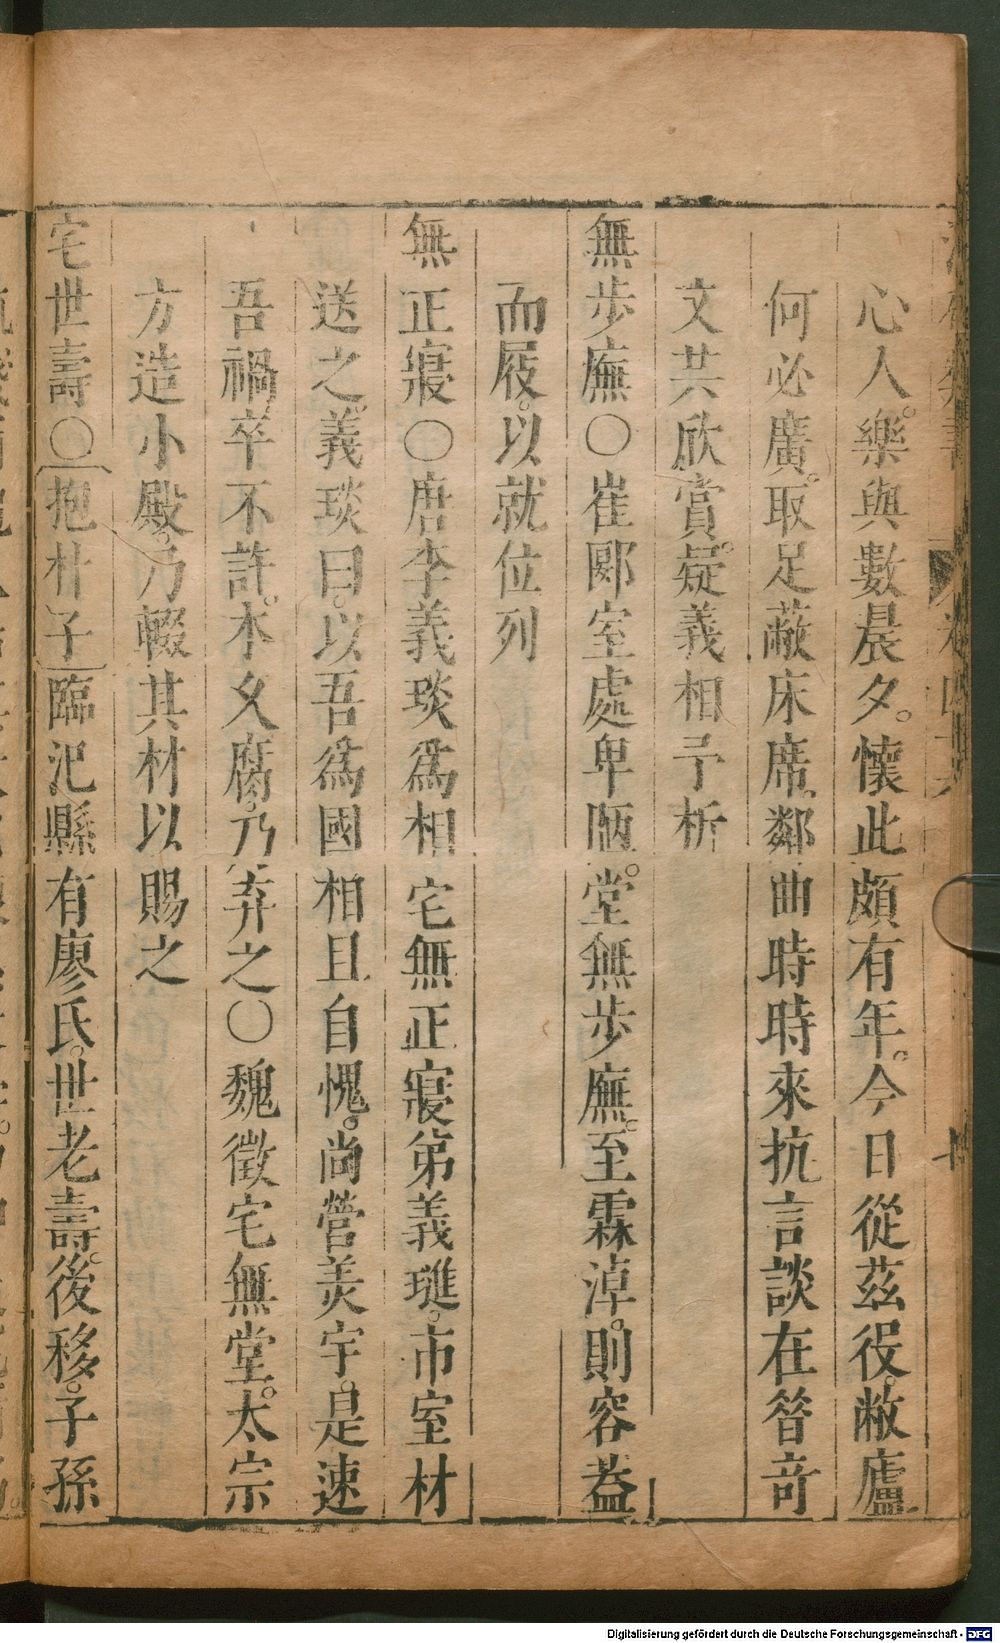 心人。樂與數晨夕。懷此頗有年。今日從茲役。敝廬
何必廣。取足蔽床席。鄰曲時時來抗言談在昔奇
文共欣賞。疑義相予析
無步廡〇崔郾室處卑陋。堂無步廡。至霖淖。則容葢
而屐。以就位列
無正寢〇唐李義琰爲相宅無正寢弟義璡。市室材
送之義琰曰。以吾爲國相且自愧。尚營美宇。是速
吾禍卒不許。木乆腐。乃弃之〇魏徵宅無堂。太宗
方造小殿。乃輟其材以賜之
宅世壽〇抱朴子臨汜縣有廖氏。世老壽。後移。子孫
Digitalisierung gefördert durch die Deutsche Forschungsgemeinschaft - DFG